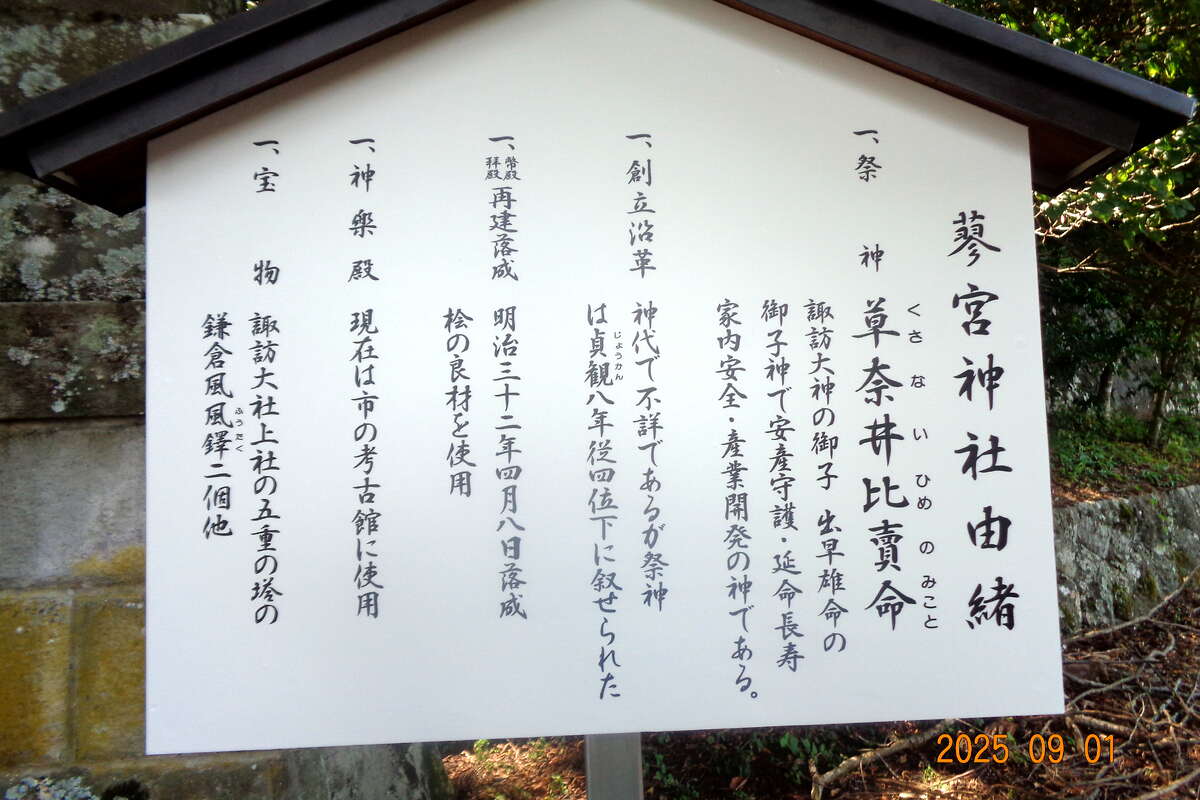 蓼宮神社由緒
一、祭神 草奈井比賣命
くさないひめのみこと
諏訪大神の御子 出早雄命の
御子神で安産守護・延命長寿
家内安全・産業開発の神である。
一、創立沿革 神代で不詳であるが祭神
は貞観八年従四位下に叙せられた
じょうかん
一、幣殿拝殿再建落成 明治三十二年四月八日落成
桧の良材を使用
一、神楽殿 現在は市の考古館に使用
一、宝物 諏訪大社上社の五重の塔の
鎌倉風風鐸二個他
ふうたく
2025 09 01